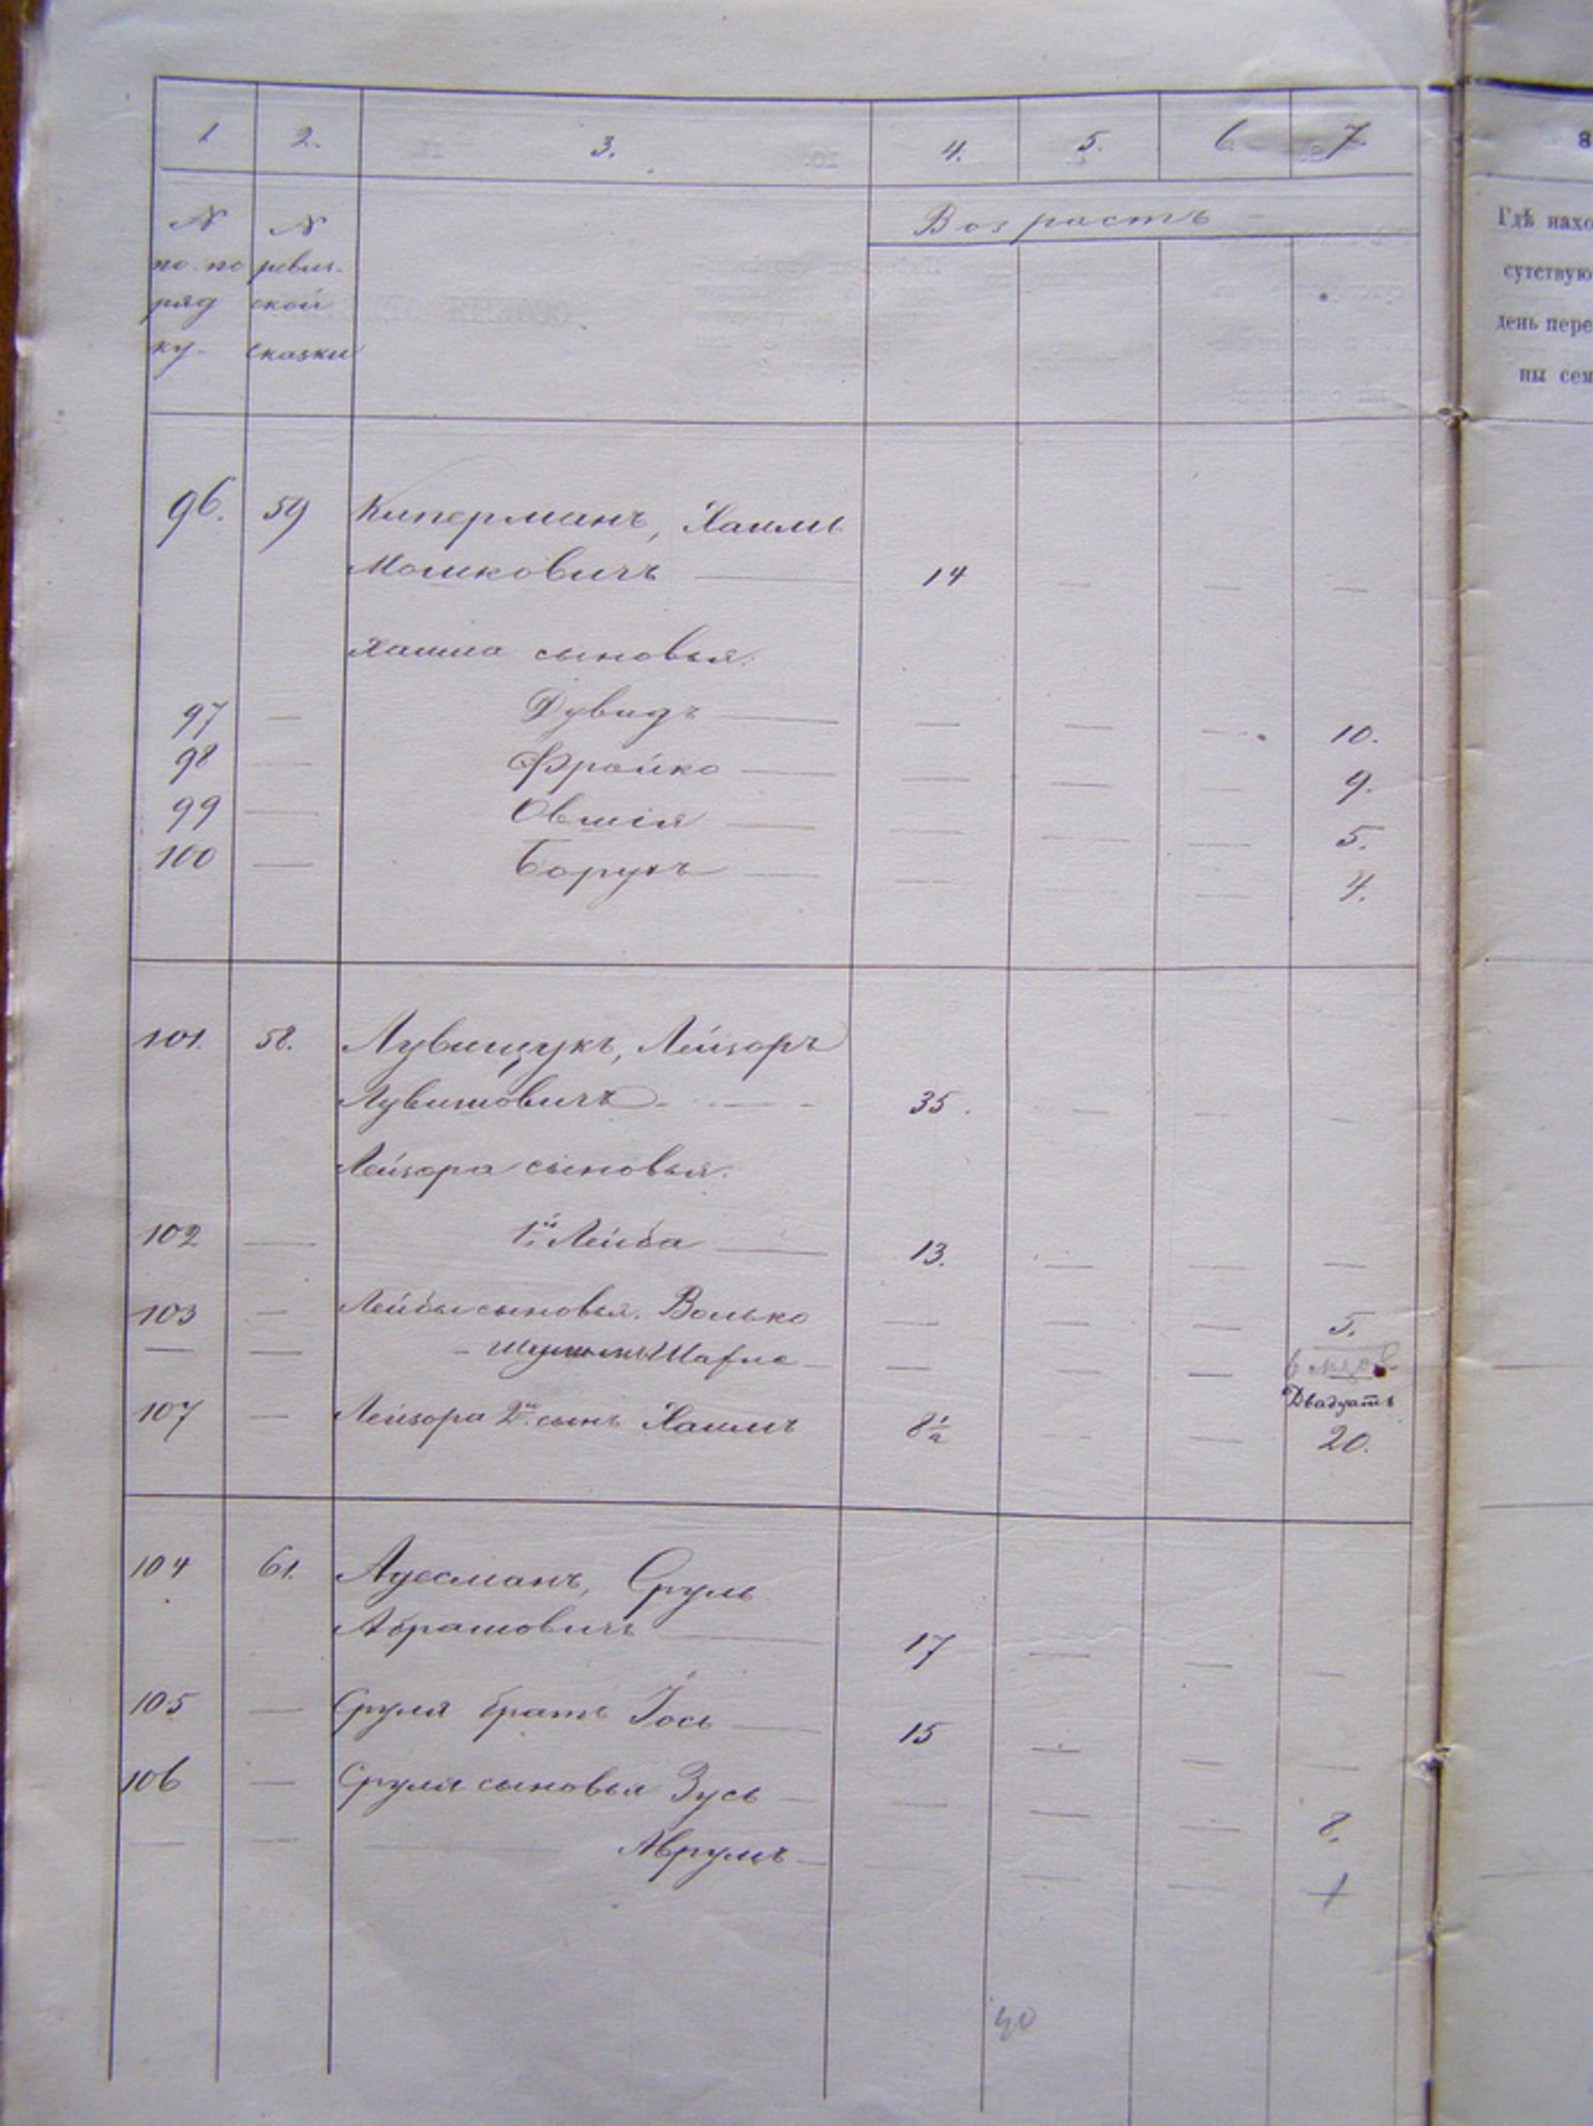 1 2. 3. 4. 5. 6 7.
N N Возрастъ
по по ревиз-
ряд ской
ку- сказки
8
Гдѣ нахо
сутствую
день пере
ны сем
96. 59 Киперманъ, Хаимъ
Мошковичъ — 14 — — —
Хаима сыновья:
97 — Дувидъ — — — — 10.
98 — Фройко — — — — 9.
99 — Овшія — — — — 5.
100 — Борухъ — — — — 4.
101. 58. Лувищукъ, Лейзоръ
Лувишовичъ - — - 35. — — —
Лейзора сыновья:
102 — 1й Лейба — 13. — — —
103 — Лейбы сыновья. Волько — — — 5.
— — - Шафна — — — —
Двадцать
107 — Лейзора 2й сынъ Хаимъ 8½ — — 20.
104 61. Адесманъ, Сруль
Абрамовичъ — 17 — — —
105 — Сруля братъ Іось — 15 — — —
106 — Сруля сыновья Зусь — — — — 8.
— — — Аврумъ — — — — 1
40